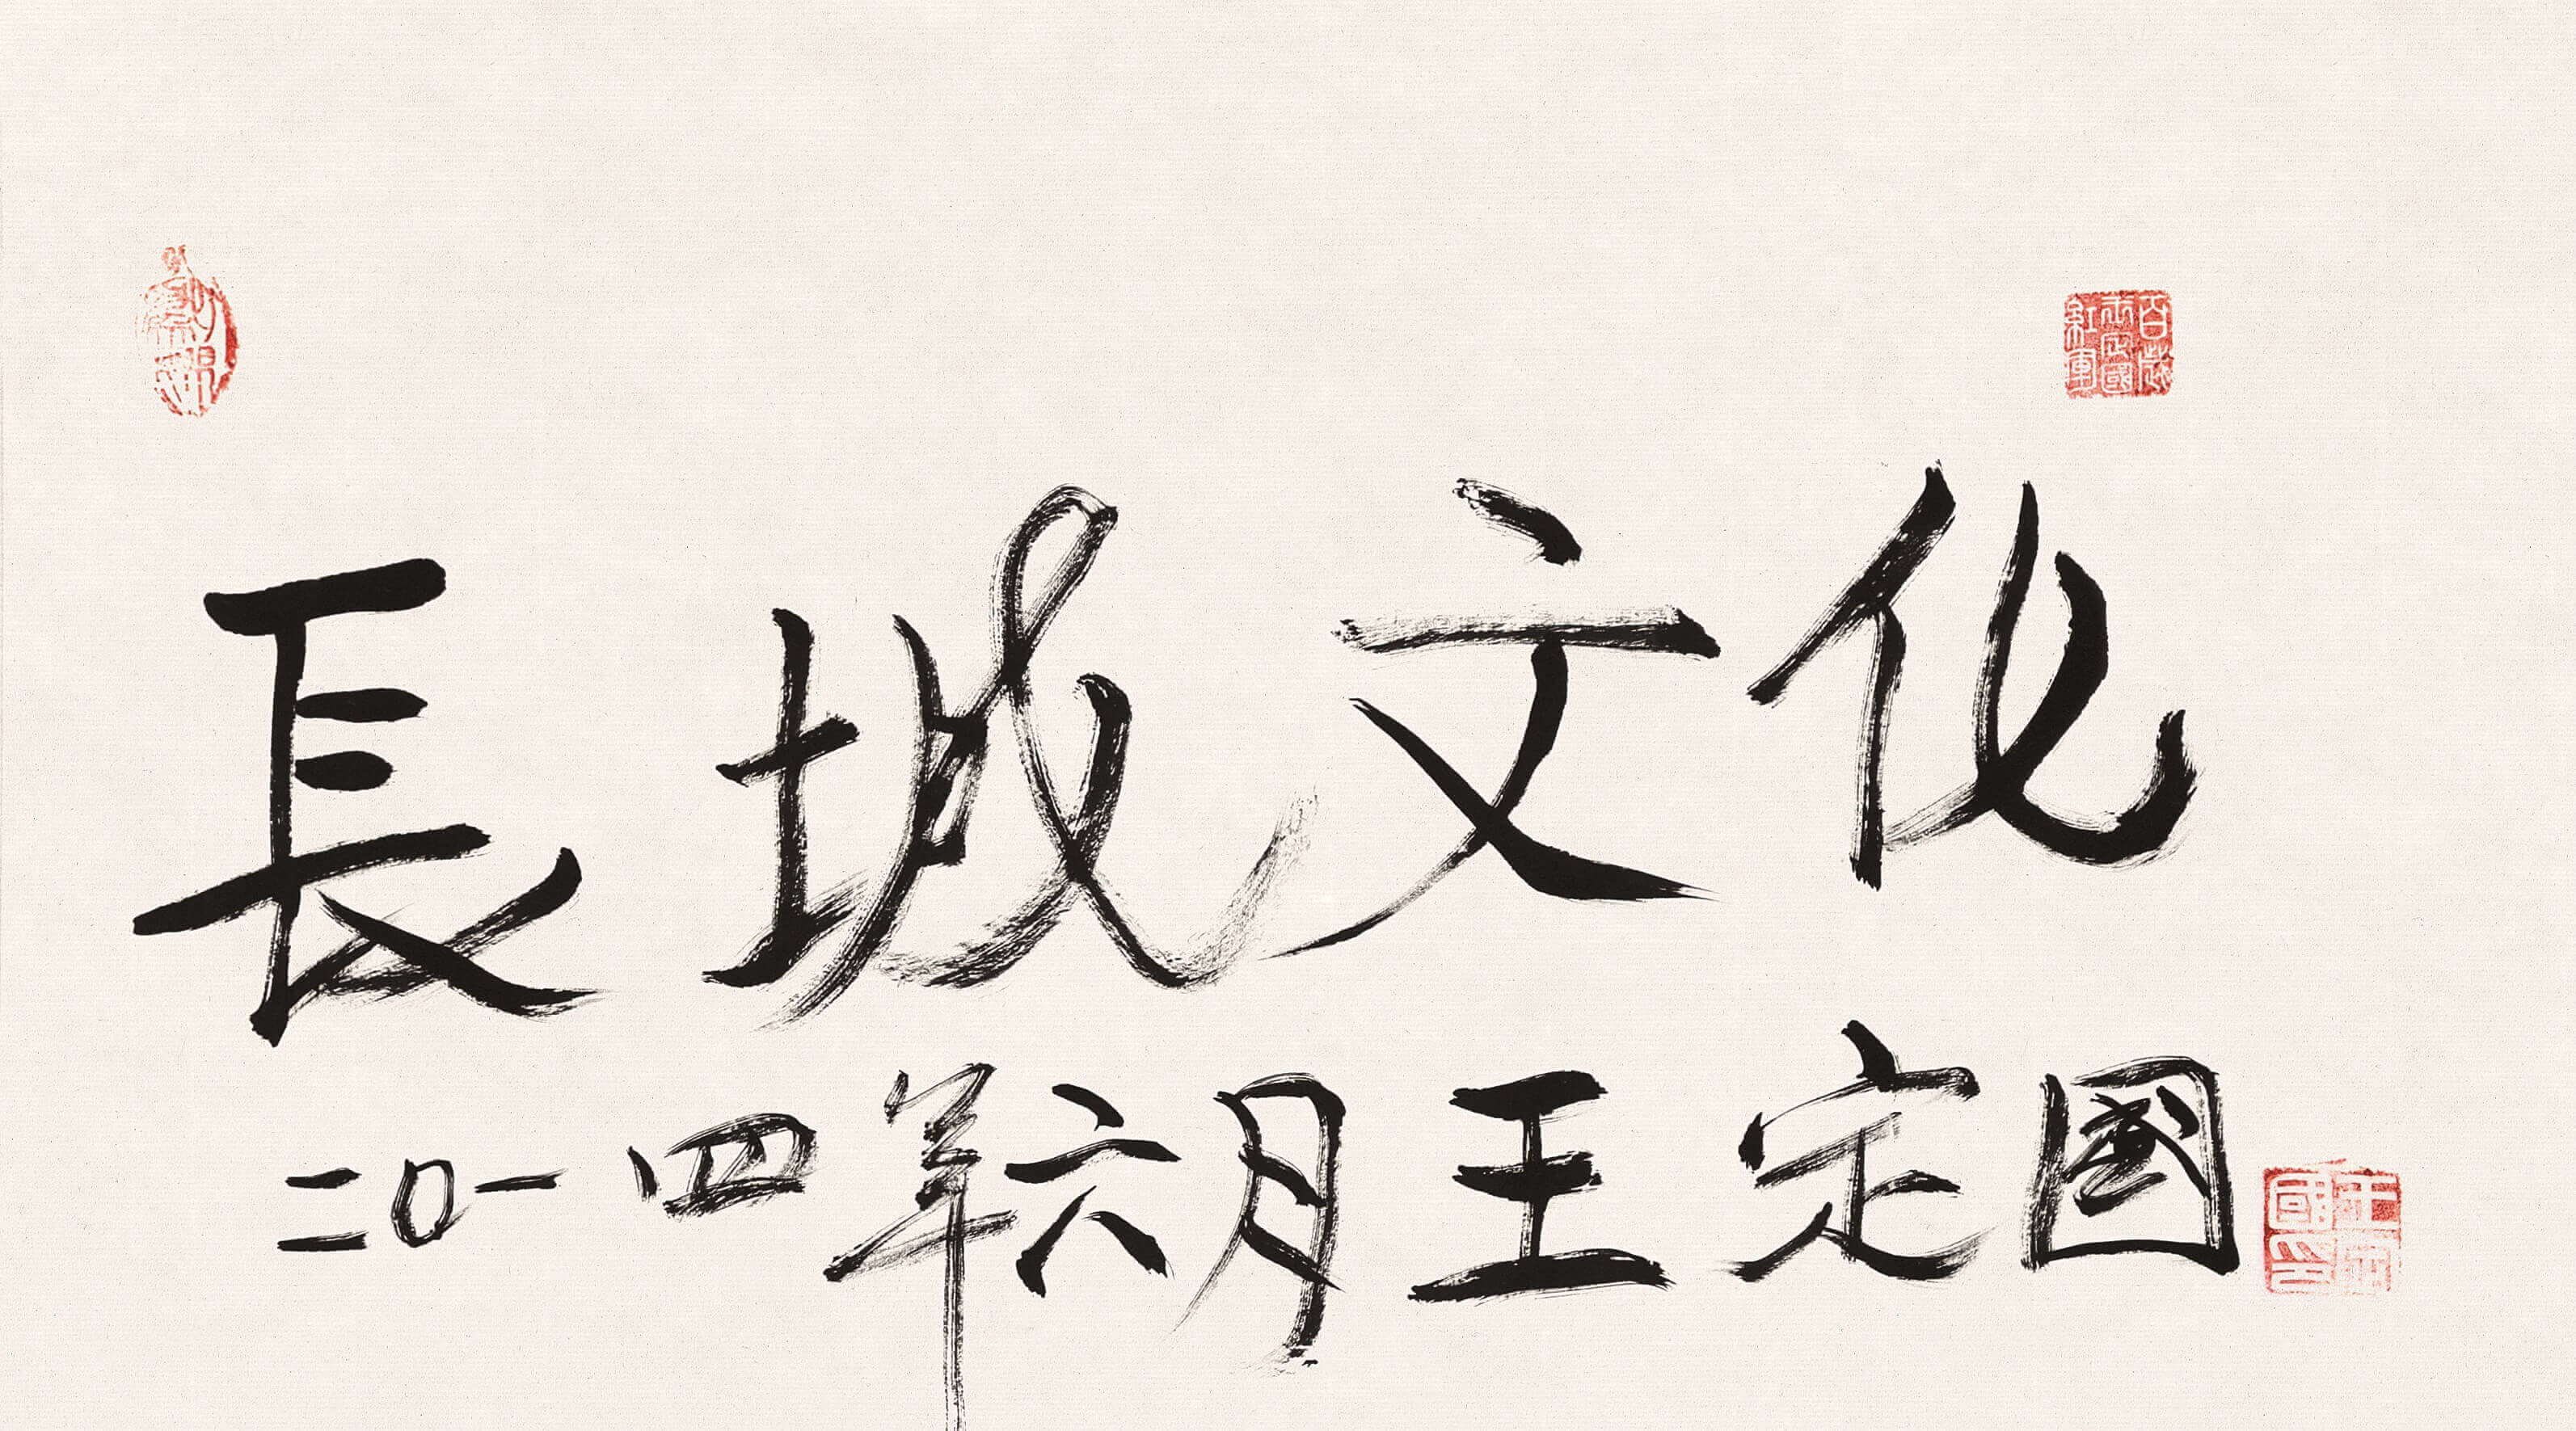 長城文化
二〇一四年六月王定國
百歲
王定國
紅軍
王定
國印